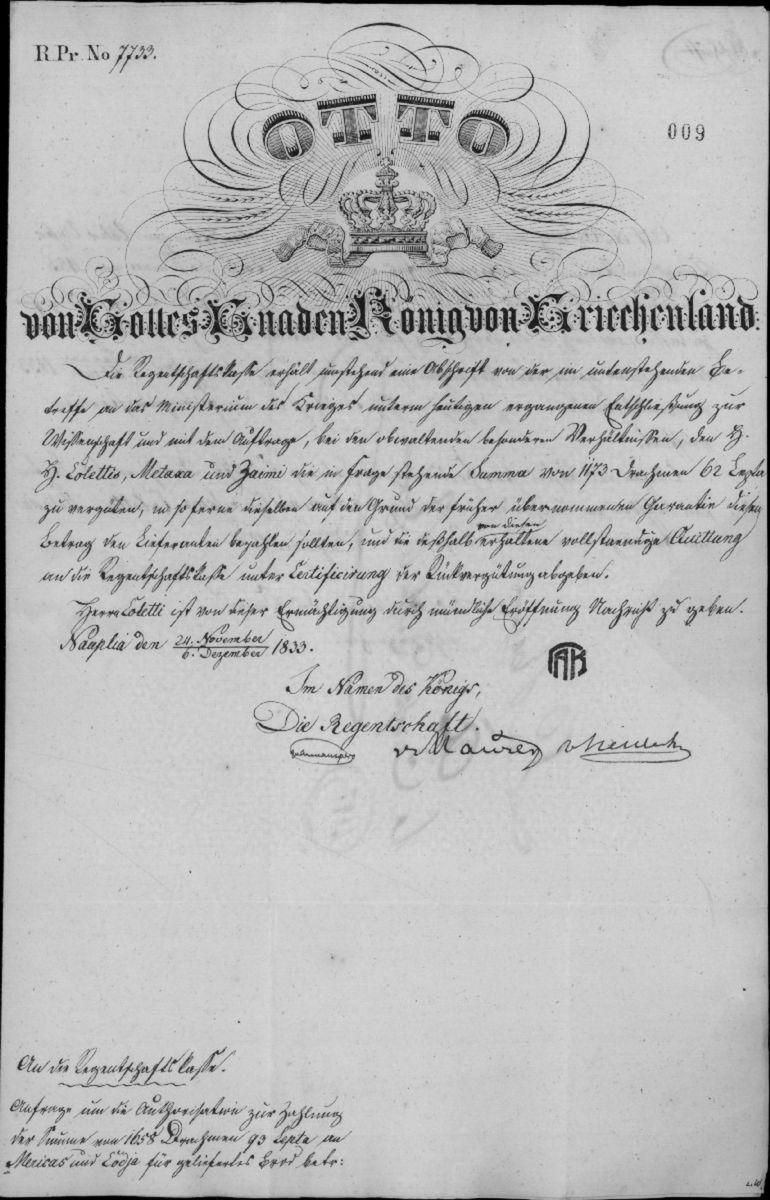 R. Pr. No 7733.
009
OTTO
von Gottes Gnaden König von Griechenland.
Die Regentschaftskasse erhält umstehend eine Abschrift von der im untenstehenden Be-
treffe an das Ministerium des Krieges unterm heutigen ergangenen Entschließung zur
Wissenschaft und mit dem Auftrage, bei den obwaltenden besonderen Verhältnissen, den H.
H. Colettis, Metaxa und Zaimi die in Frage stehende Summa von 1173 Drachmen 62 Lepta
zu vergüten, in soferne dieselben auf den Grund der früher übernommenen Garantie diesen
Betrag den Lieferanten bezahlen sollten, und die deßhalb von diesen erhaltene vollstaendige Quittung
an die Regentschaftskasse unter Certificirung der Rückvergütung abgeben.
Herrn Coletti ist von dieser Ermächtigung durch mündliche Eröffnung Nachricht zu geben.
Nauplia den 24. November / 6. Dezember 1833.
ΓΑΚ
Im Namen des Königs,
Die Regentschaft.
v. Maurer
An die Regentschaftskasse.
Anfrage um die Authorisation zur Zahlung
der Summe von 1658 Drachmen 93 Lepta an
Mericas und Lödja für geliefertes Brod betr: